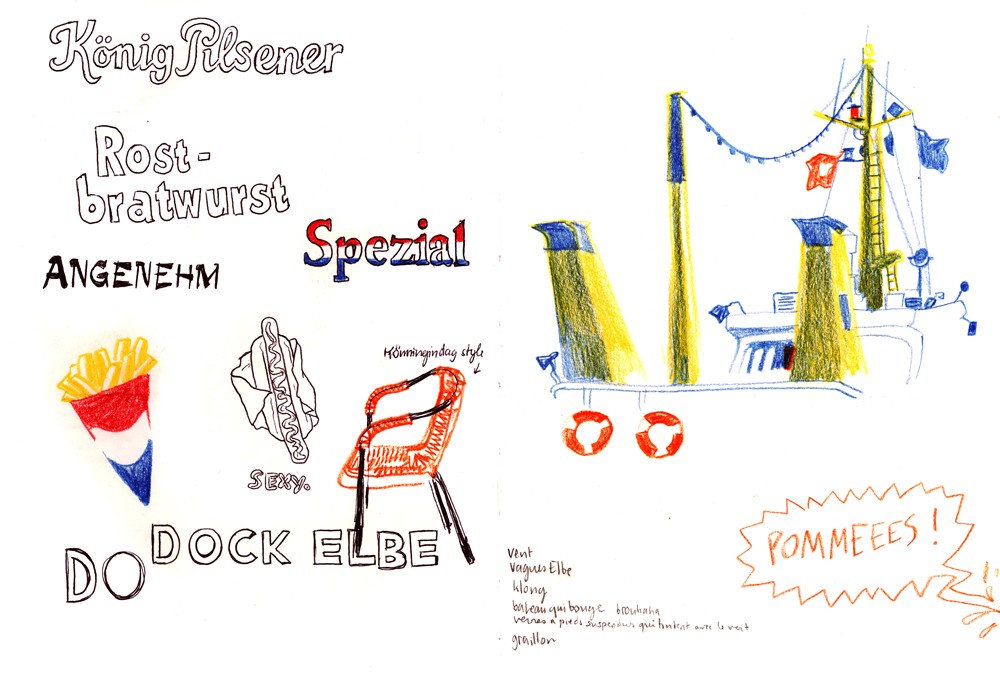 König Pilsener
Rost-
bratwurst
Spezial
ANGENEHM
Könningindag style
SEXY.
DO DOCK ELBE
vent
vagues Elbe
klong
bateau qui bouge brouhaha
verres à pieds suspendus qui tintent avec le vent
graillon
POMMEEES !